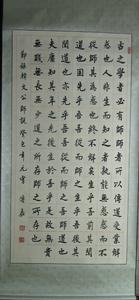 古之學者必有師師者所以傳道受業解
惑也人非生而知之者孰能無惑惑而不
從師其為惑也終不解矣生乎吾前其聞
道也固先乎吾吾從而師之生乎吾後其
聞道也亦先乎吾吾從而師之吾師道也
夫庸知其年之先後生於吾乎是故無貴
無賤無長無少道之所存師之所存也
韓文公師說癸巳年元宵